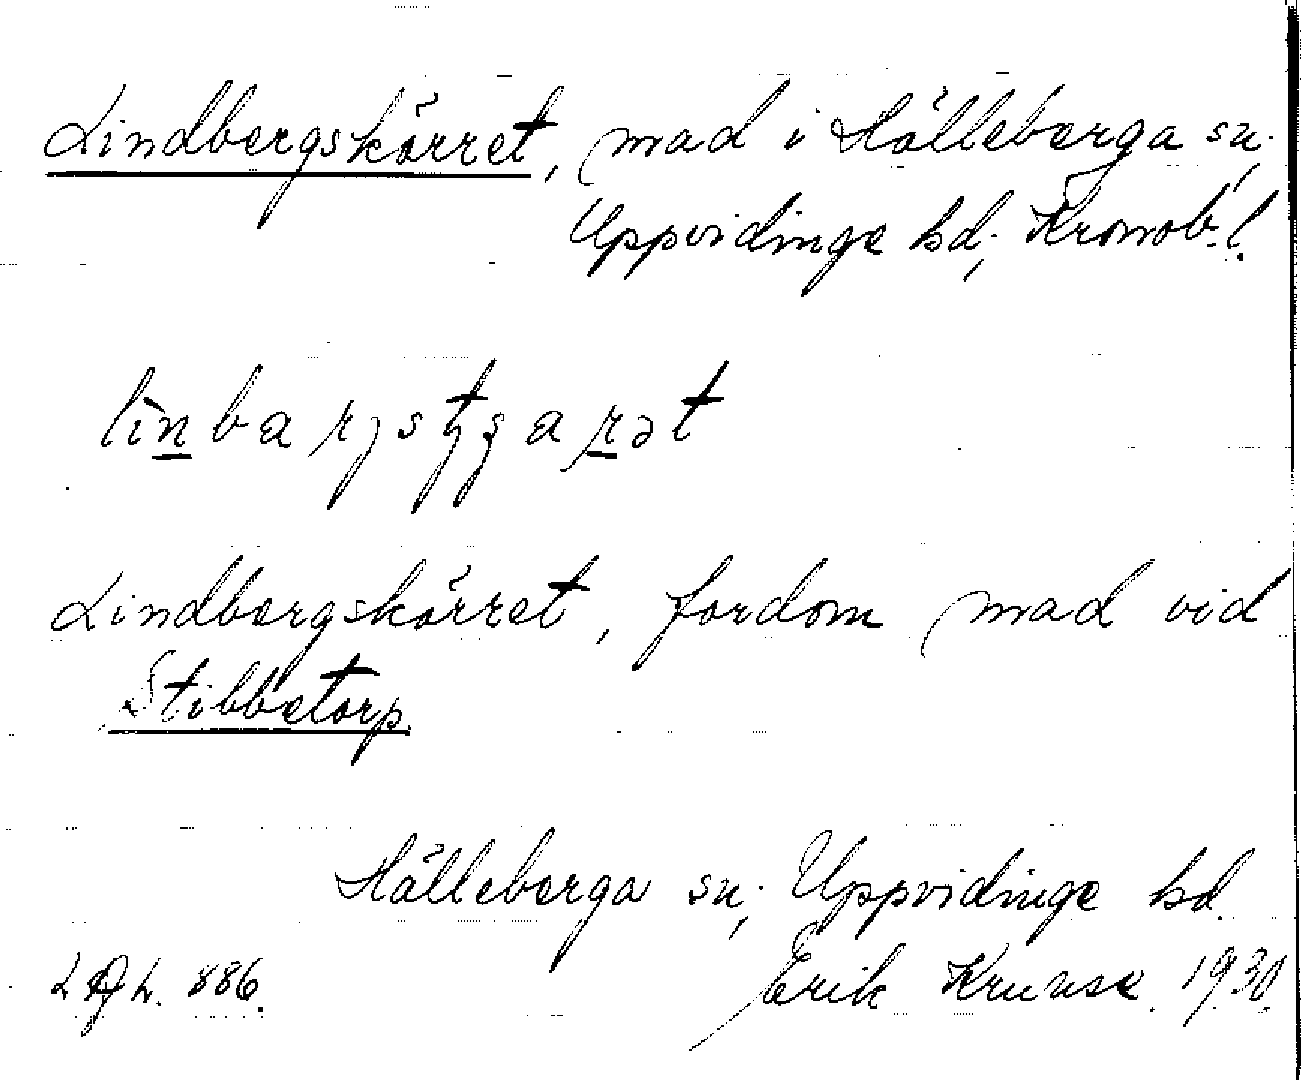 Lindbergskärret, mad i Hälleberga sn.,
Uppvidinge hd., Kronob. l.
Lindbergskärret, fordom mad vid
Stibbetorp.
Hälleberga sn., Uppvidinge hd.
886. Erik Kruuse. 1930.